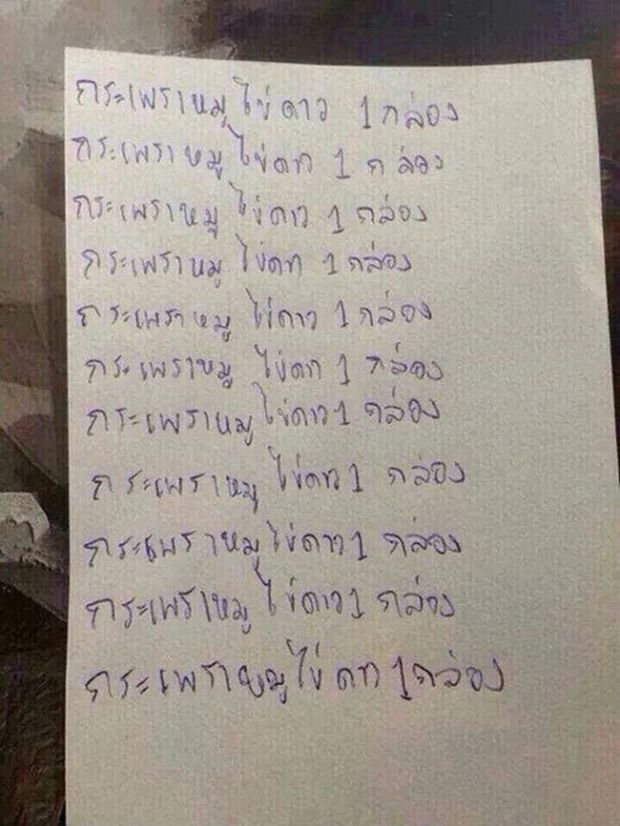 กระเพราหมู ไข่ดาว 1 กล่อง
กระเพราหมู ไข่ดาว 1 กล่อง
กระเพราหมู ไข่ดาว 1 กล่อง
กระเพราหมู ไข่ดาว 1 กล่อง
กระเพราหมู ไข่ดาว 1 กล่อง
กระเพราหมู ไข่ดาว 1 กล่อง
กระเพราหมู ไข่ดาว 1 กล่อง
กระเพราหมู ไข่ดาว 1 กล่อง
กระเพราหมู ไข่ดาว 1 กล่อง
กระเพราหมู ไข่ดาว 1 กล่อง
กระเพราหมู ไข่ดาว 1 กล่อง